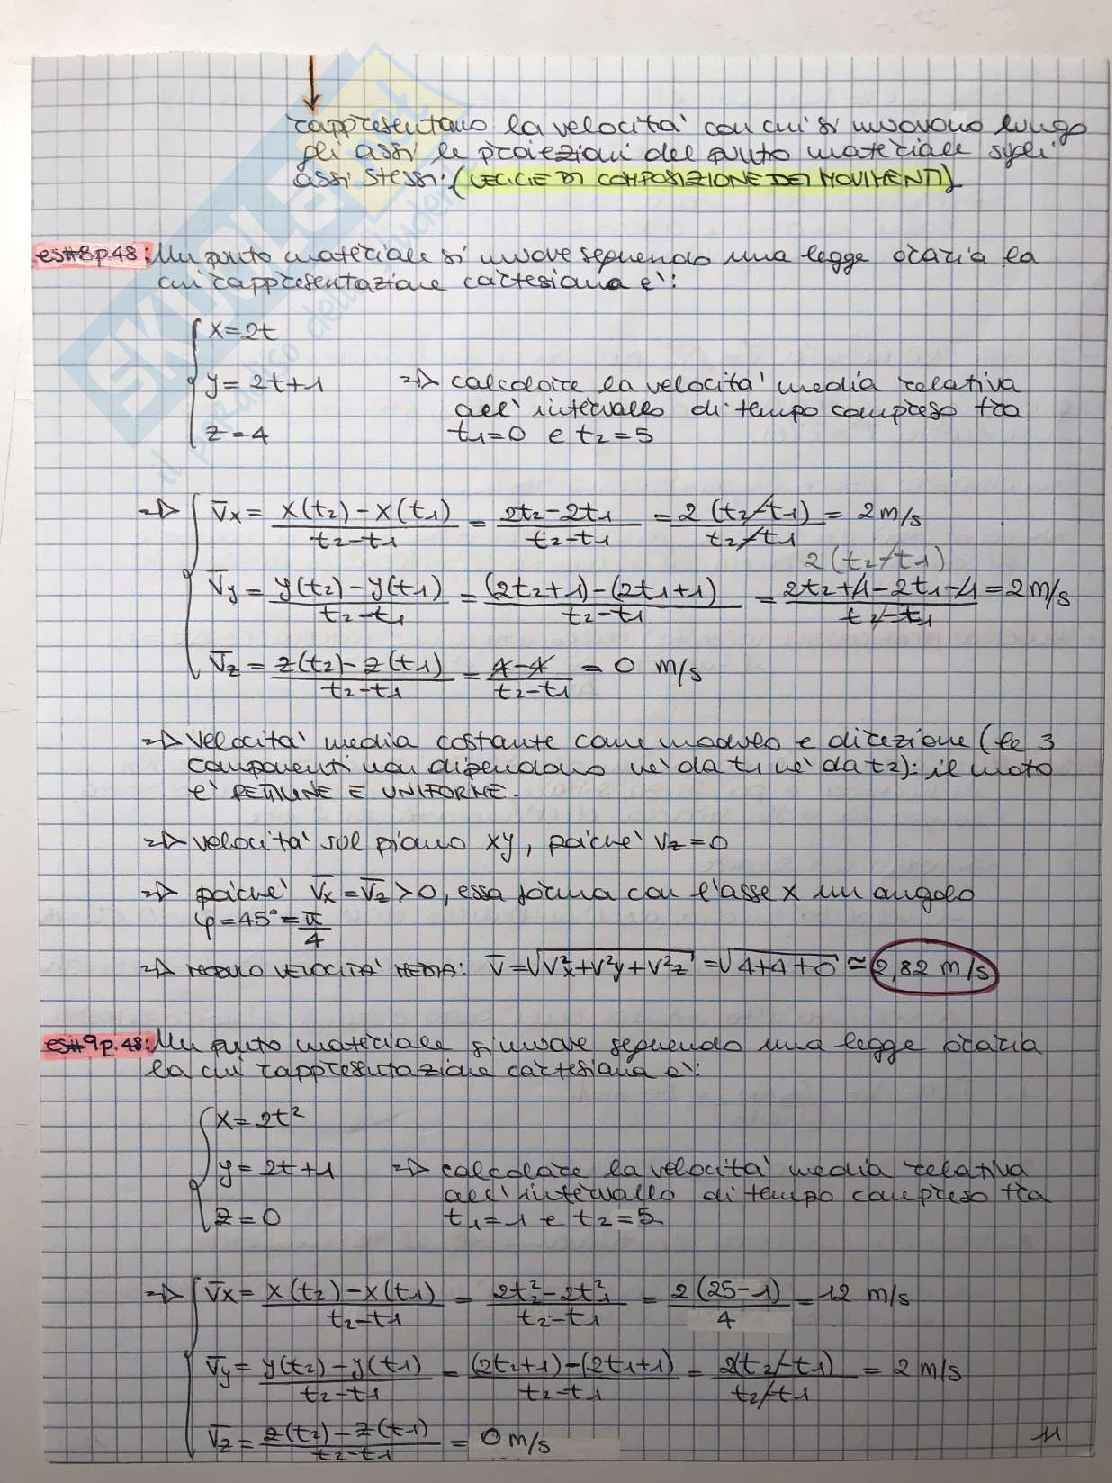 rappresentano la velocità con cui si muovono lungo
gli assi le proiezioni del punto materiale sugli
assi stessi. (LEGGE DI COMPOSIZIONE DEI MOVIMENTI)
es#8p.48: Un punto materiale si muove seguendo una legge oraria la
cui rappresentazione cartesiana è:
x=2t
y=2t+1 => calcolare la velocità media relativa
all'intervallo di tempo compreso tra
z=4 t1=0 e t2=5
=> V̄x = x(t2)-x(t1) / t2-t1 = 2t2-2t1 / t2-t1 = 2(t2-t1) / t2-t1 = 2 m/s
2(t2-t1)
V̄y = y(t2)-y(t1) / t2-t1 = (2t2+1)-(2t1+1) / t2-t1 = 2t2+1-2t1-1 / t2-t1 = 2 m/s
V̄z = z(t2)-z(t1) / t2-t1 = 4-4 / t2-t1 = 0 m/s
=> velocità media costante come modulo e direzione (le 3
componenti non dipendono né da t1 né da t2): il moto
è RETTILINE E UNIFORME.
=> velocità sul piano xy, poiché Vz=0
=> poiché V̄x=V̄z>0, essa forma con l'asse x un angolo
φ=45°=π/4
=> MODULO VELOCITÀ MEDIA: V̄=√V²x+V²y+V²z = √4+4+0 ≃ 2,82 m/s
es#9p.48: Un punto materiale si muove seguendo una legge oraria
la cui rappresentazione cartesiana è:
x=2t²
y=2t+1 => calcolare la velocità media relativa
all'intervallo di tempo compreso tra
z=0 t1=1 e t2=5
=> V̄x = x(t2)-x(t1) / t2-t1 = 2t2²-2t1² / t2-t1 = 2(25-1) / 4 = 12 m/s
V̄y = y(t2)-y(t1) / t2-t1 = (2t2+1)-(2t1+1) / t2-t1 = 2(t2-t1) / t2-t1 = 2 m/s
V̄z = z(t2)-z(t1) / t2-t1 = 0 m/s
11
SKUOLA.net